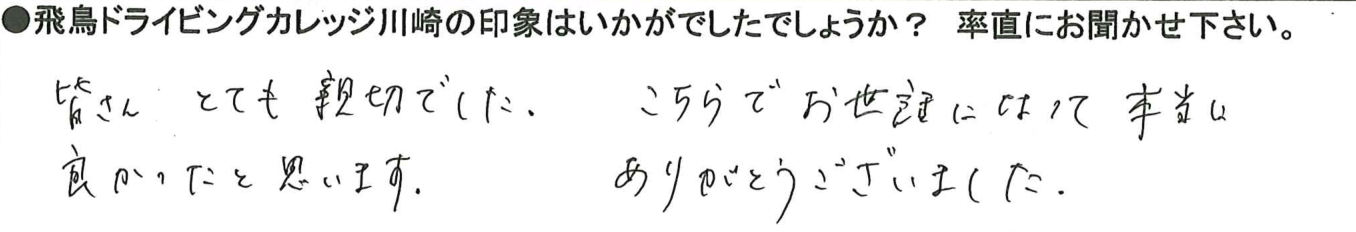 ●飛鳥ドライビングカレッジ川崎の印象はいかがでしたでしょうか？ 率直にお聞かせ下さい。
皆さん とても親切でした. こちらでお世話になって本当に
良かったと思います. ありがとうございました.